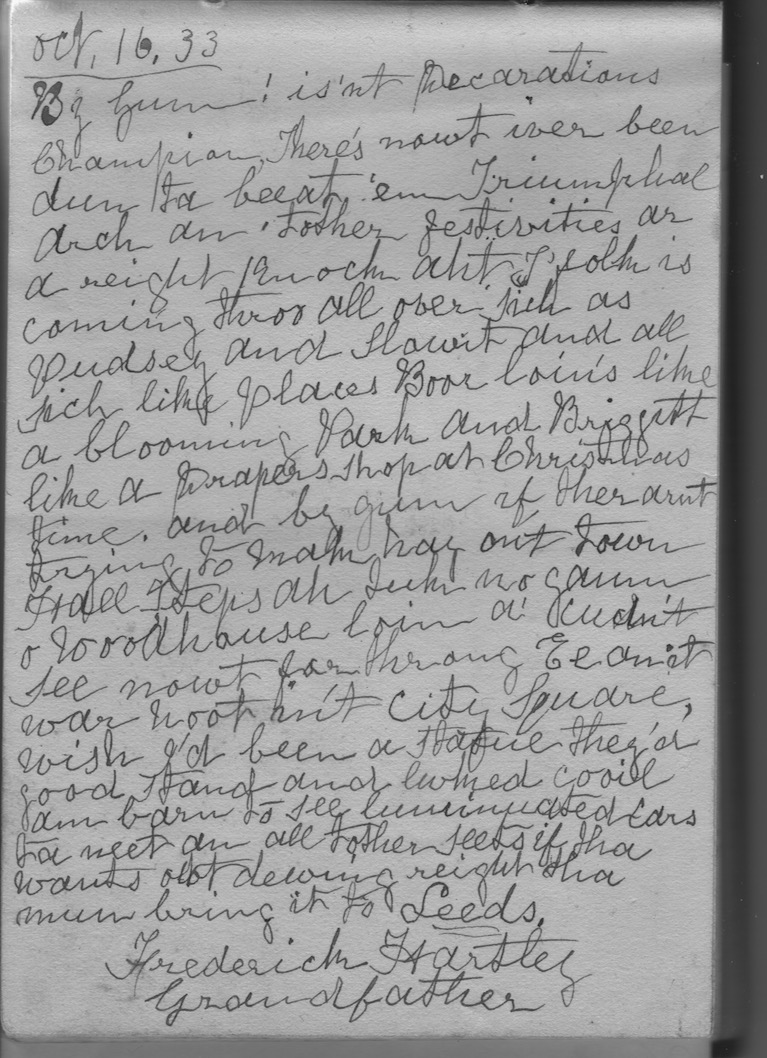 Oct, 16, 33
By Gum! is'nt Decarations
Champion, There's nowt iver been
dun ta beeat 'em Triumphal
Arch an' tother festivities ar
a reight knock aht T'folk is
coming throo all over sich as
Pudsey and Slowit and all
sich like places Boor loin's like
a blooming Park and Briggitt
like a Drapers shop at Christmas
time. and by gum if ther arnt
trying to mak hay ont Town
Hall Steps ah tuk no gaum
o Woodhouse loin a' cudn't
see nowt for throng Ee an it
war hoot in't City Square,
wish I'd been a statue they'd
good stand and looked cooil
am barn to see luminated Cars
ta neet an all tother seets if tha
wants owt dewing reight tha
mun bring it to Leeds.
Frederick Hartley
Grandfather